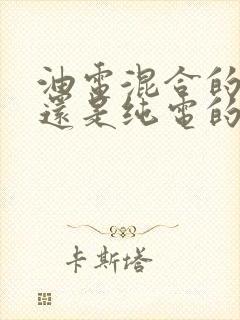 油電混合的
還是纯電的
卡斯塔